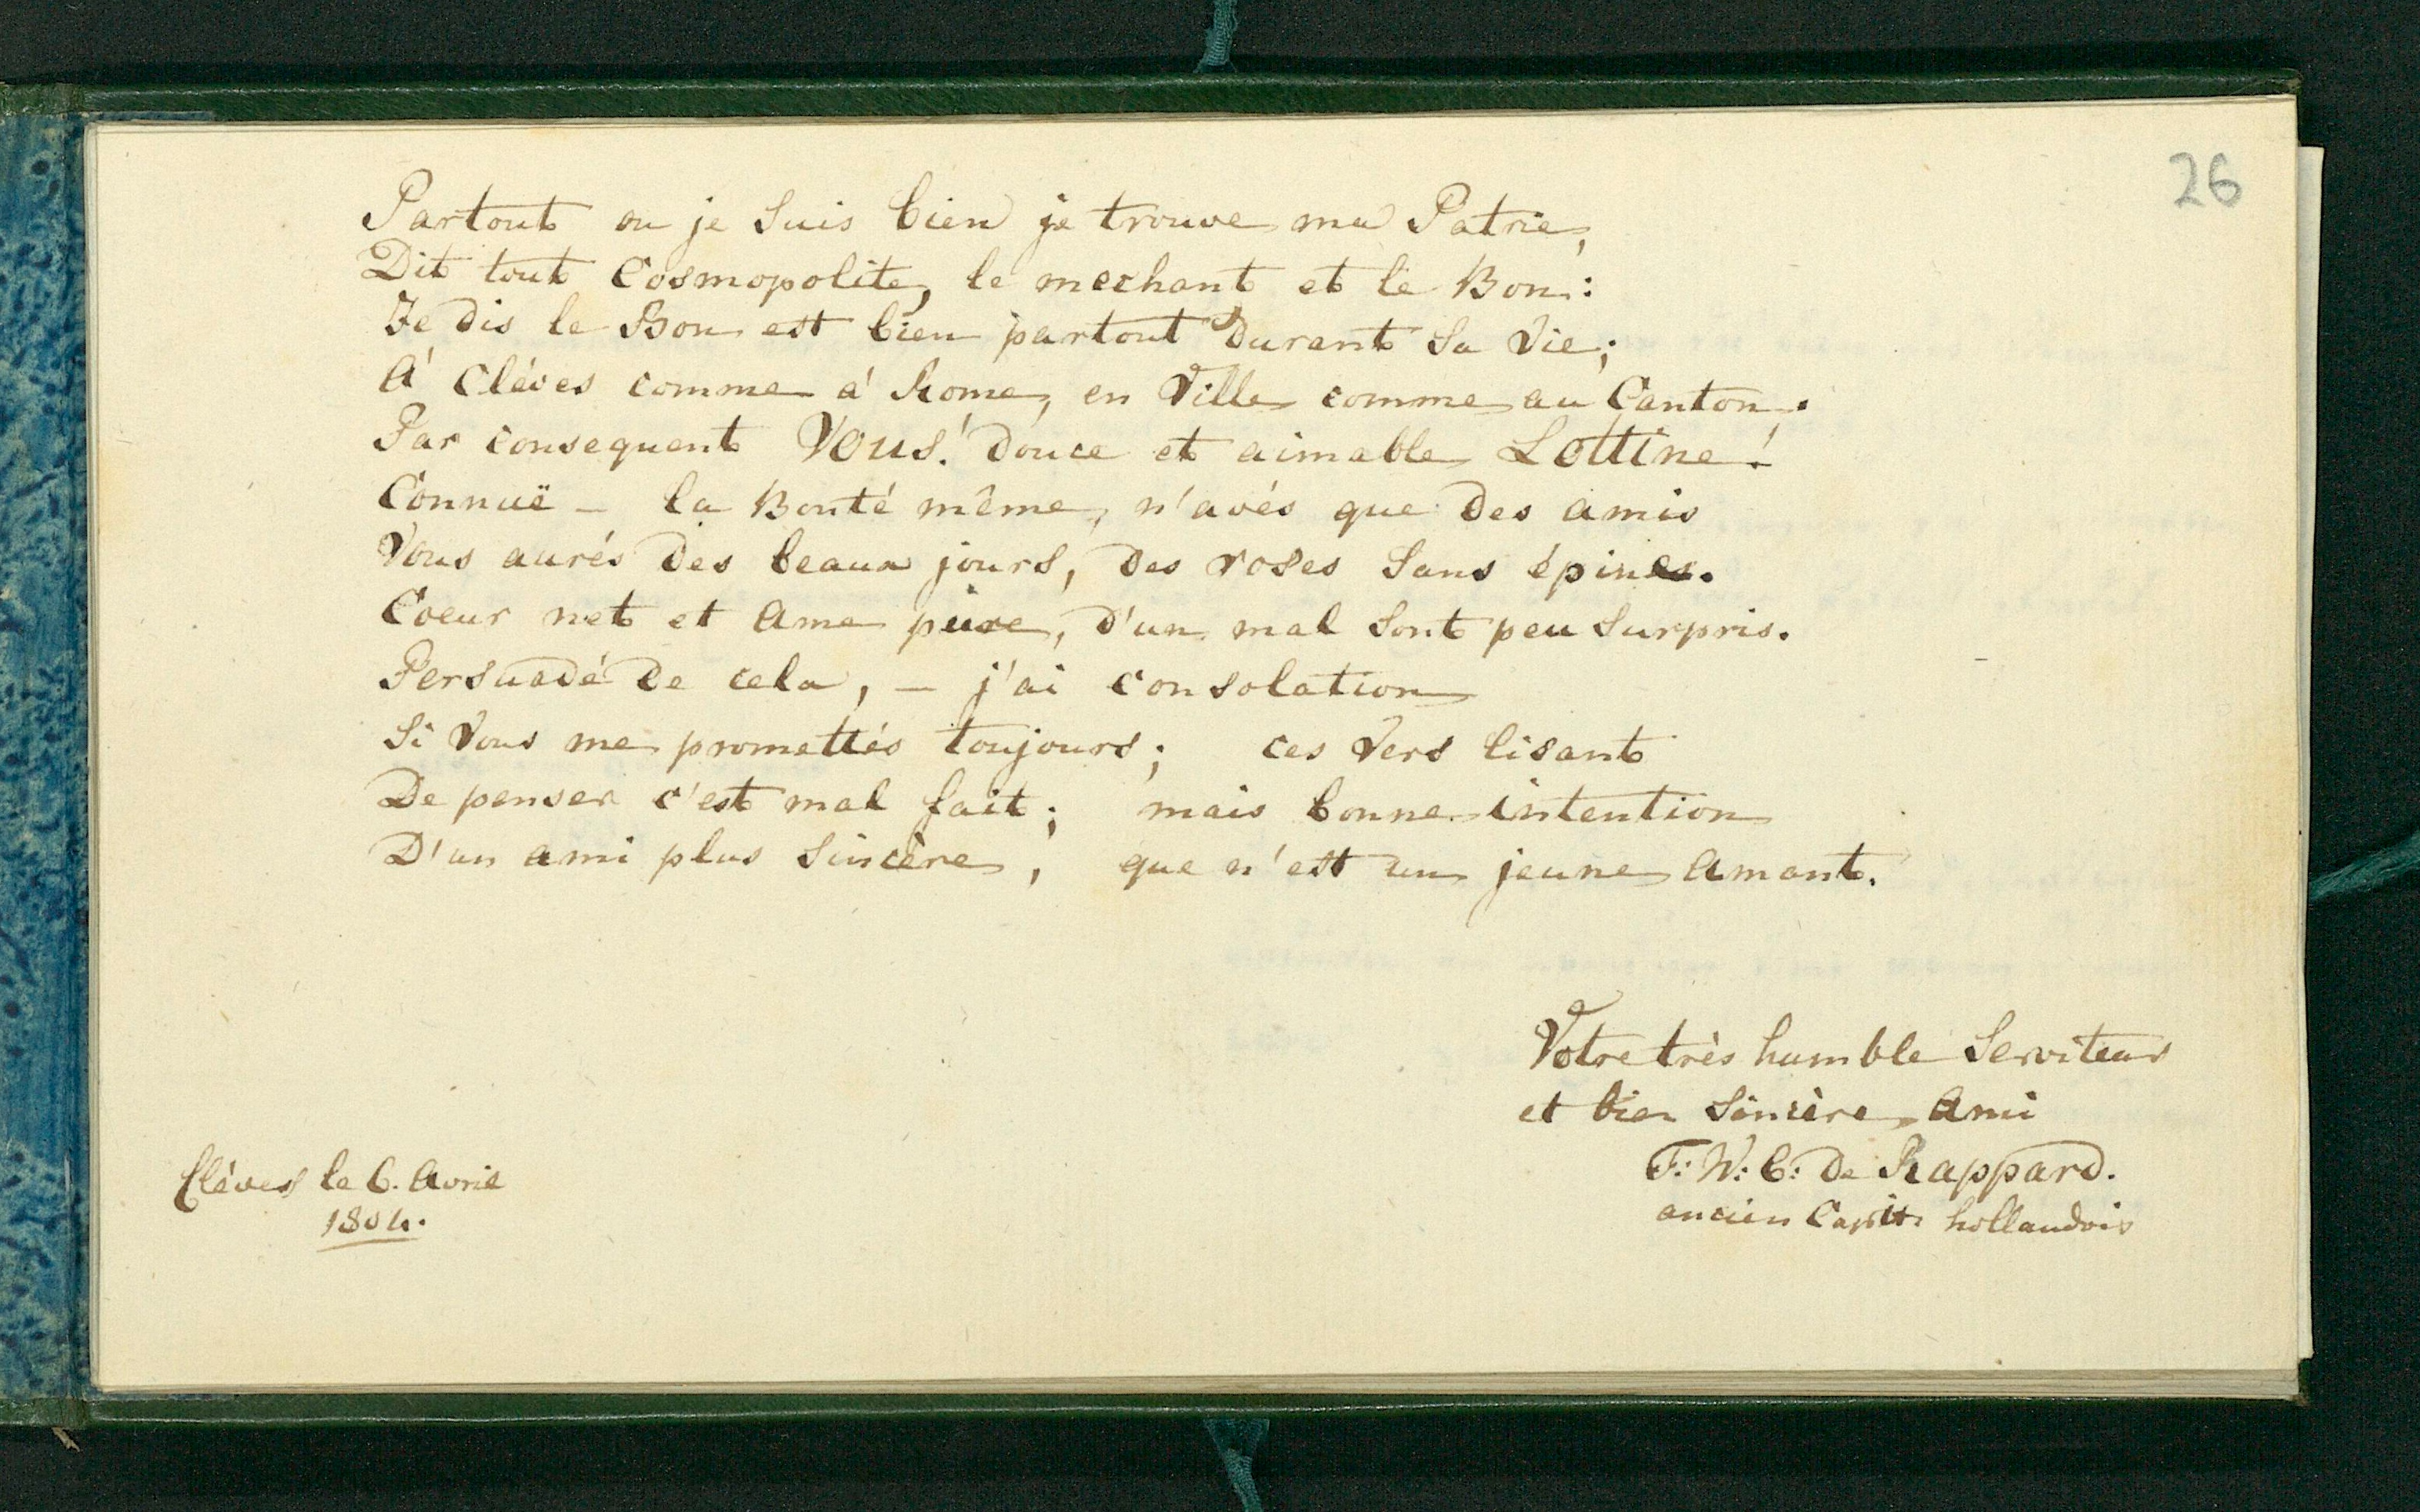 26
Partout ou je suis bien je trouve ma Patrie,
Dit tout Cosmopolite, le mechant et le Bon:
Je dis le Bon est bien partout durant sa vie;
A' Cléves comme a' Rome, en Ville comme au Canton.
Par consequent Vous! douce et aimable Lottine!
Connuë – la Bonté même, n'avés que des amis
Vous aurés des beaux jours, des roses sans épines.
Coeur net et ame pure, d'un mal sont peu surpris.
Persuadé de cela, – j'ai consolation
Si Vous me promettés toujours; ces Vers lisant
De penser c'est mal fait; mais bonne intention
D'un ami plus sincère, que n'est un jeune Amant.
Votre très humble Serviteur
et bien sincère Ami
F: W: C: de Rappard.
ancien Capit: hollandois
Clèves le 6. Avril
1804.